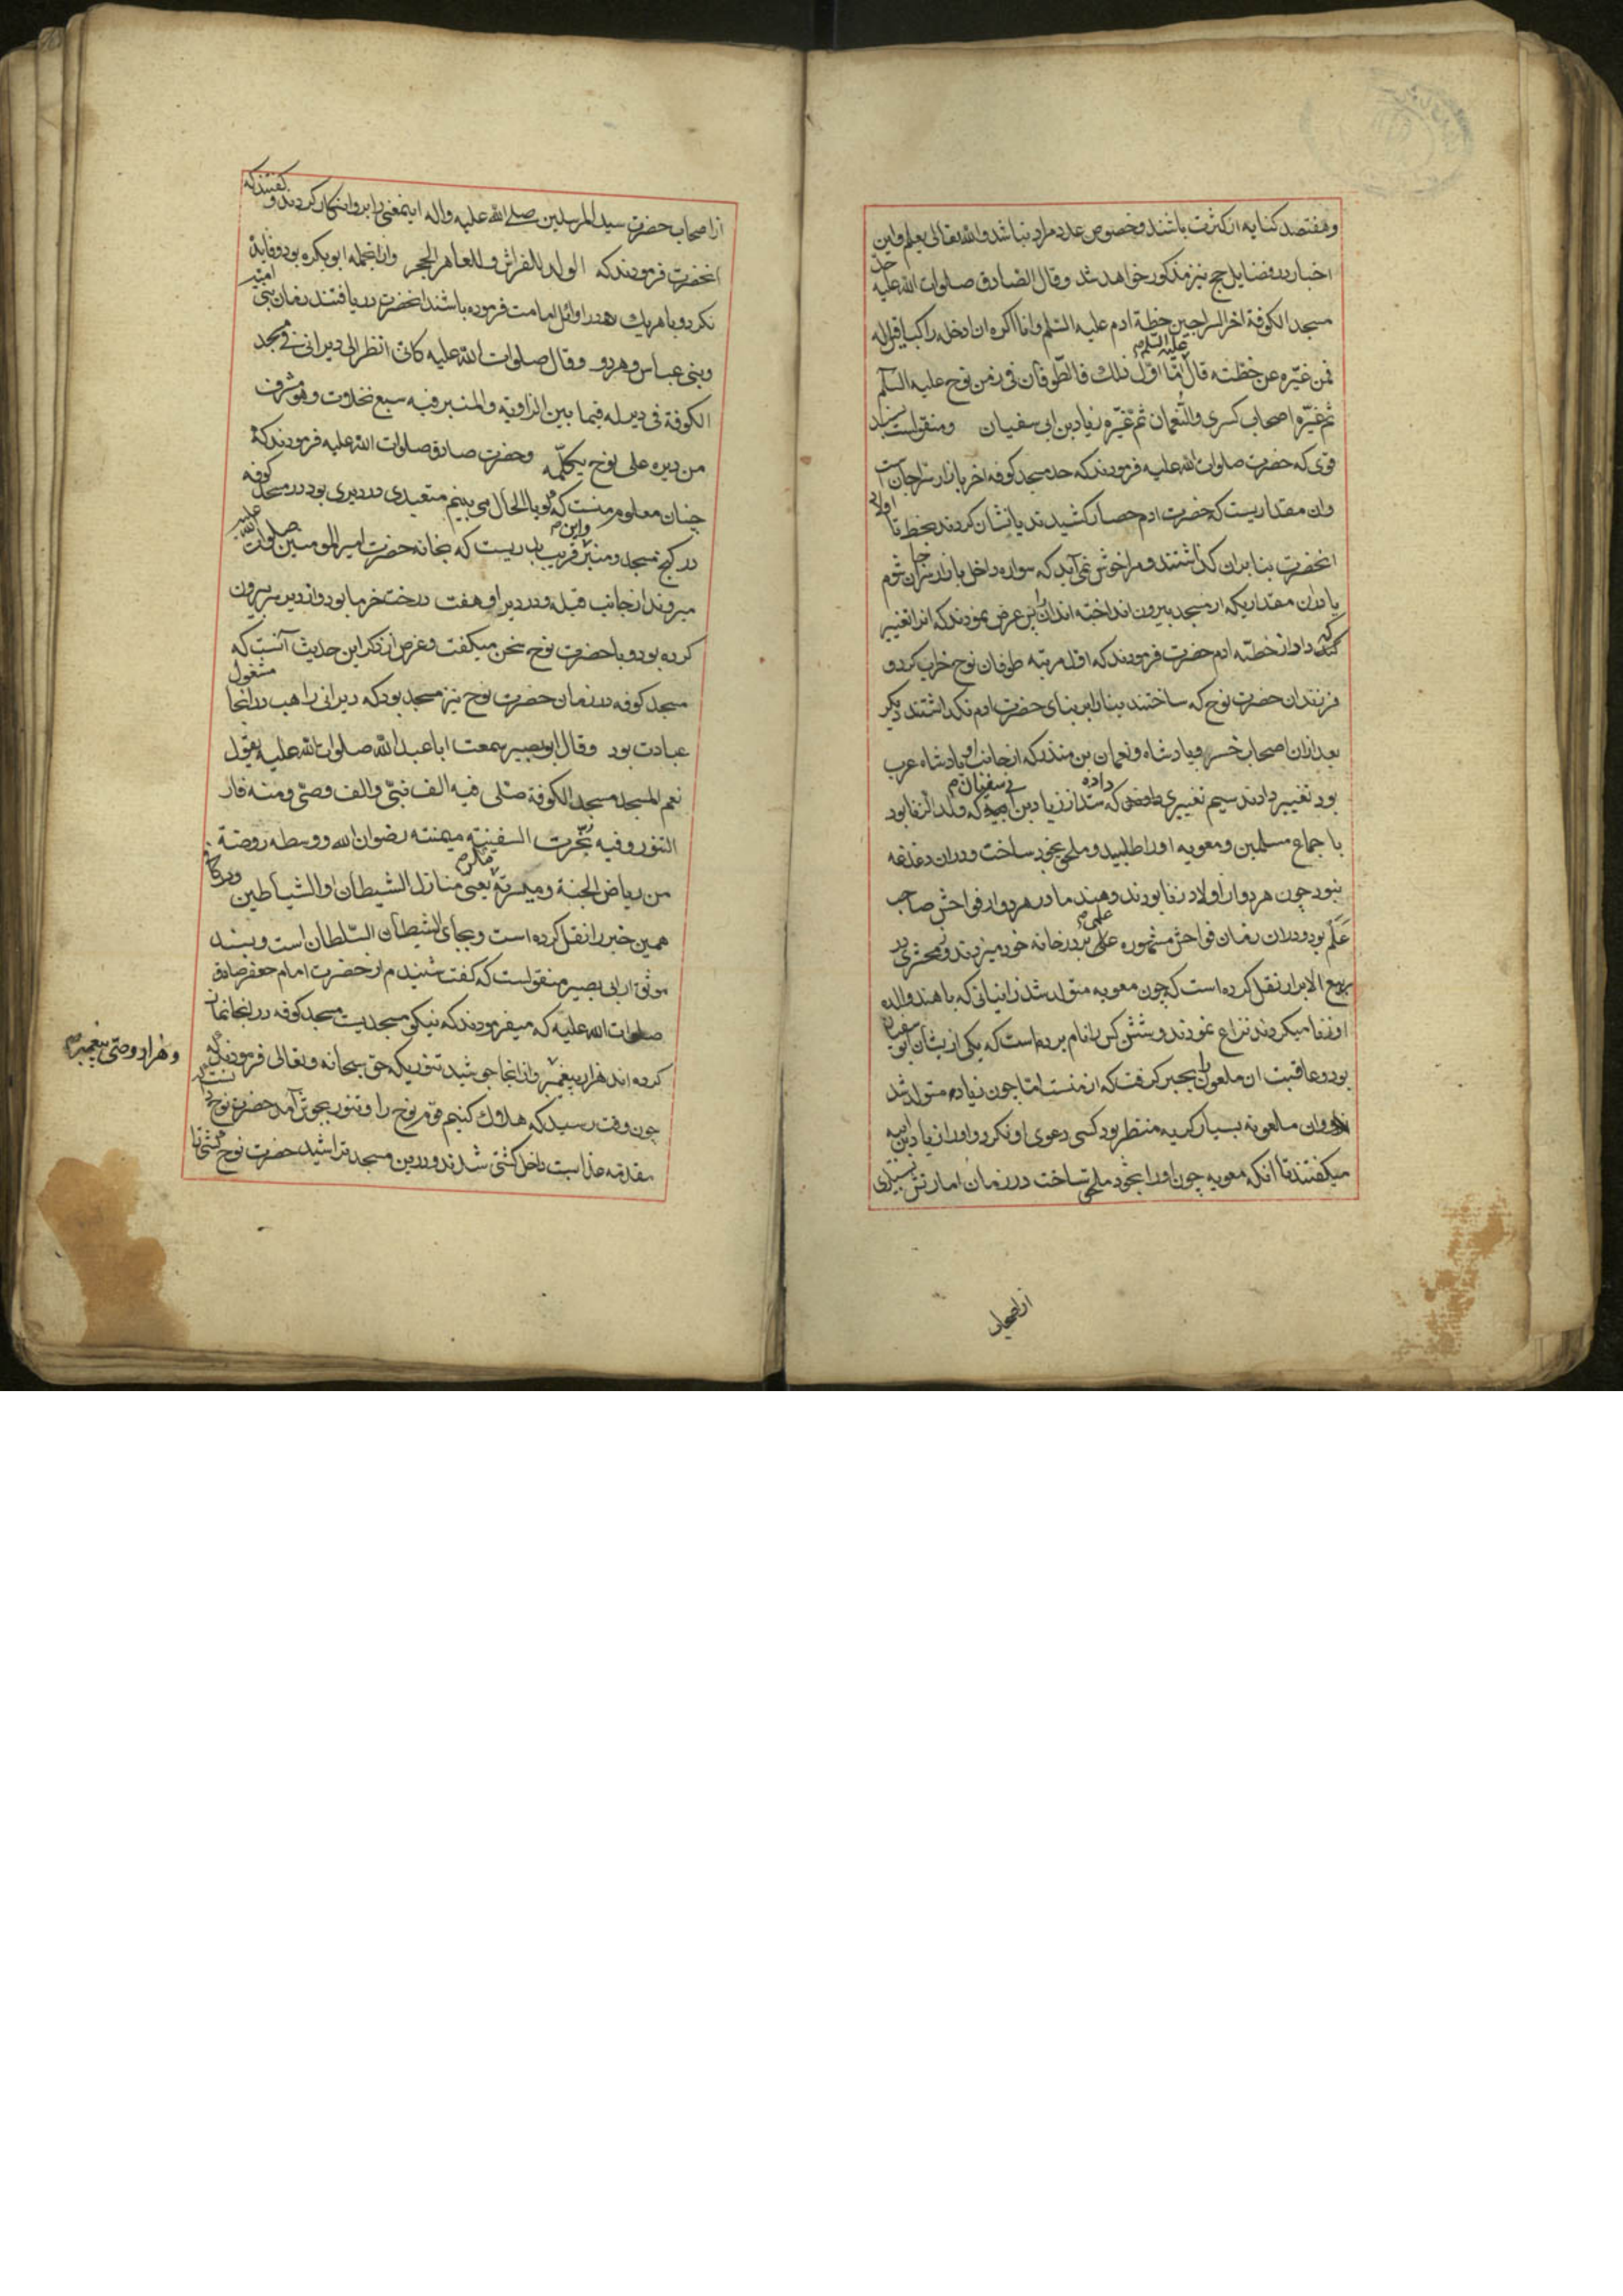 وهفتصد کنایه از کثرت باشند وخصوص عدد مراد نباشد والله تعالی یعلم واین
اخبار در فضایل حج نیز مذکور خواهد شد وقال الصادق صلوات الله علیه حد
مسجد الکوفة اخر السراجین خطه ادم علیه السلم وانا اکره ان ادخله راکبا قیل له
فمن غیّره عن خطته قال امّا اوّل ذلک فالطوفان فی زمن نوح علیه السلم
ثم غیّره اصحاب کسری والنعمان ثم غیّره زیاد بن ابی سفیان ومنقولست بسند
قوی که حضرت صلوات الله علیه فرمودند که حد مسجد کوفه اخر بازار سراجان است
وان مقداریست که حضرت ادم حصار کشیدند یا نشان کردند بخط تا اولاد
انحضرت بنا بران گذاشتند ومرا خوش نمی‌آید که سواره داخل بازار سراجان شوم
یا دران مقداریکه از مسجد بیرون انداخته اند پس عرض نمودند که انرا تغییر
که داد از خطّه ادم حضرت فرمودند که اول مرتبه طوفان نوح خراب کرد و
فرزندان حضرت نوح که ساختند بنا را بر بنای حضرت ادم نگذاشتند دیگر
بعد ازان اصحاب خسرو پادشاه ونعمان بن منذر که از جانب او پادشاه عرب
بود تغییر دادند سیم تغییری که داده شد از زیاد بن ابی سفیان که ولد الزنا بود
باجماع مسلمین ومعویه اورا طلبید وملحق بخود ساخت ودران دغدغه
نبود چون هر دو از اولاد زنا بودند وهند مادر هر دو از فواحش صاحب
عَلَم بود ودران زمان فواحش مشهوره علمی بر در خانه خود میزدند وزمخشری در
ربیع الابرار نقل کرده است که چون معویه متولد شد زانیانی که با هند والده
او زنا میکردند نزاع نمودند وشش کس را نام برده است که یکی از ایشان ابو سفیان
بود وعاقبت ان ملعون را بجبر گرفت که از منست امّا چون زیاد متولد شد
وان ملعونه بسیار کریه منتظر بود کسی دعوی او نکرد واورا زیاد بن ابیه
میگفتند تا آنکه معویه چون اورا بخود ملحق ساخت در زمان امارتش بسیاری
از اصحاب
از اصحاب حضرت سید المرسلین صلی الله علیه واله اینمعنی را برو انکار کردند وگفتند که
انحضرت فرمودند که الولد للفراش وللعاهر الحجر وازانجمله ابو بکره بود وفایده
نکرد ویا هریک در اوائل امامت فرموده باشند انحضرت دریافتند زمان بنی امیه
وبنی عباس وهر دو وقال صلوات الله علیه کانی انظر الی دیرانی فی مسجد
الکوفة فی دیر له فیما بین الزاویة والمنبر فیه سبع نخلات وهو مشرف
من دیره علی نوح یکلّمه وحضرت صادق صلوات الله علیه فرمودند که
چنان معلوم منست که گویا الحال می بینم متعبدی در دیری بود در مسجد کوفه
در کنج مسجد ومنبر واین قریب بدریست که بخانه حضرت امیر المومنین صلوات الله علیه
میروند از جانب قبله ودر دیر او هفت درخت خرما بود واز دیر سر بیرون
کرده بود وبا حضرت نوح سخن میگفت وغرض از ذکر این حدیث آنست که
مسجد کوفه در زمان حضرت نوح نیز مسجد بود که دیرانی راهب در انجا مشغول
عبادت بود وقال ابو بصیر سمعت ابا عبد الله صلوات الله علیه یقول
نعم المسجد مسجد الکوفة صلّی فیه الف نبیّ والف وصیّ ومنه فار
التنور وفیه نُجّرت السفینة میمنته رضوان الله ووسطه روضة
من ریاض الجنة ومیسرته مکر یعنی منازل الشیطان او الشیاطین ودر کافی
همین خبر را نقل کرده است وبجای الشیطان السّلطان است وبسند
موثق از ابی بصیر منقولست که گفت شنیدم از حضرت امام جعفر صادق
صلوات الله علیه که میفرمودند که نیکو مسجدیست مسجد کوفه در انجا نماز
کرده اند هزار پیغمبر وازانجا جوشید تنوریکه حق سبحانه وتعالی فرمودند که
وهزار وصیّ پیغمبر
چون وقت رسید که هلاک کنیم قوم نوح را وتنور بجوش آمد حضرت نوح
مقدمه عذابست داخل کشتی شدند ودرین مسجد تراشید حضرت نوح کشتی تا